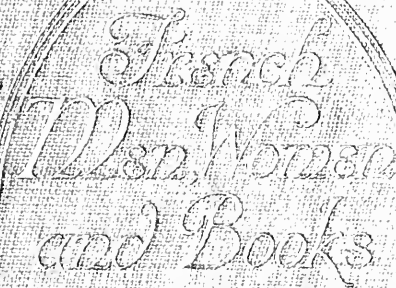 French
Men, Women
and Books